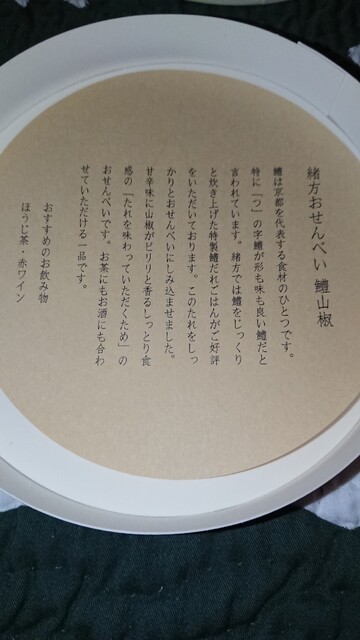 緒方おせんべい 鱧山椒
鱧は京都を代表する食材のひとつです。
特に「つ」の字鱧が形も味も良い鱧だと
言われています。緒方では鱧をじっくり
と炊き上げた特製鱧だれごはんがご好評
をいただいております。このたれをしっ
かりとおせんべいにしみ込ませました。
甘辛味に山椒がピリリと香るしっとり食
感の「たれを味わっていただくため」の
おせんべいです。お茶にもお酒にも合わ
せていただける一品です。
おすすめのお飲み物
ほうじ茶・赤ワイン